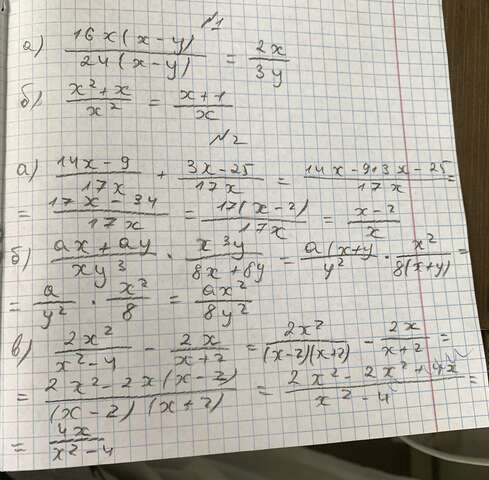 №1
а) 16x(x-y)/24(x-y) = 2x/3y
б) x²+x/x² = x+1/x
№2
а) 14x-9/17x + 3x-25/17x = 14x-9+3x-25/17x =
= 17x-34/17x = 17(x-2)/17x = x-2/x
б) ax+ay/xy³ · x³y/8x+8y = a(x+y/y² · x²/8(x+y) =
= a/y² · x²/8 = ax²/8y²
в) 2x²/x²-4 - 2x/x+2 = 2x²/(x-2)(x+2) - 2x/x+2 =
= 2x²-2x(x-2)/(x-2)(x+2) = 2x²-2x²+4x/x²-4 =
= 4x/x²-4